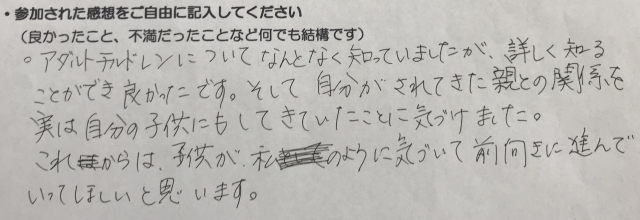 ・参加された感想をご自由に記入してください
（良かったこと、不満だったことなど何でも結構です）
。アダルトチルドレンについてなんとなく知っていましたが、詳しく知る
ことができ良かったです。そして 自分がされてきた親との関係を
実は自分の子供にもしてきていたことに気づけました。
これからは、子供が、私のように気づいて前向きに進んで
いってほしいと思います。